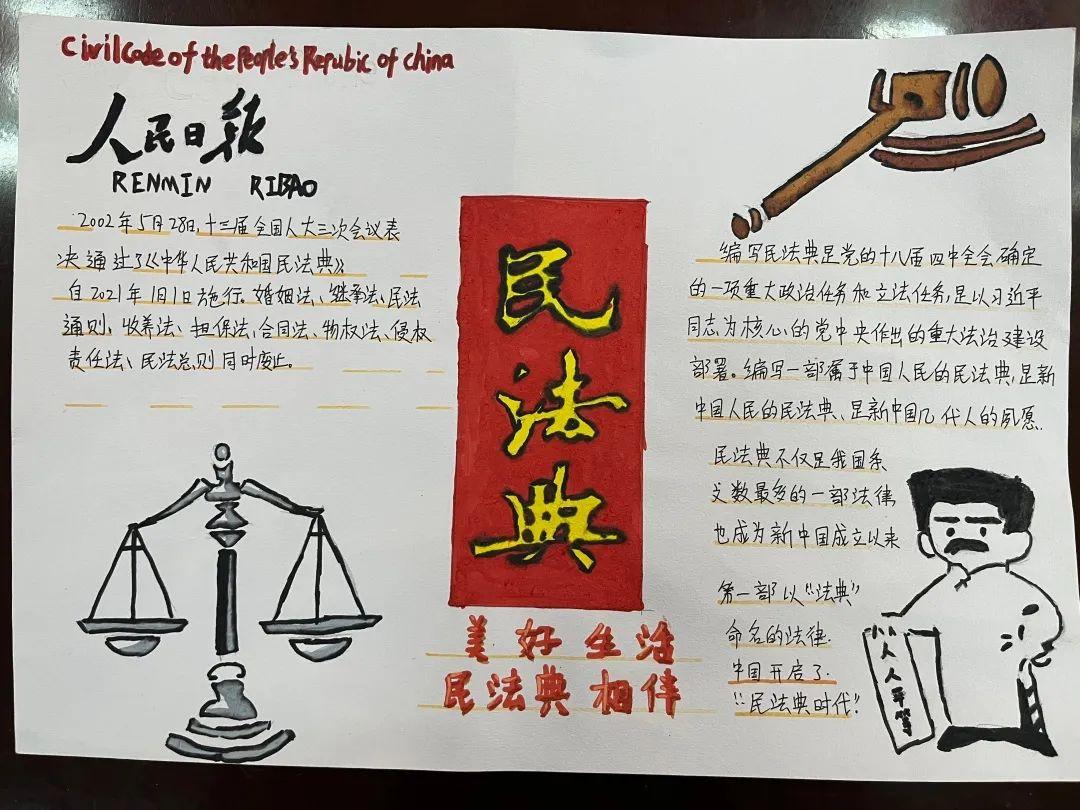 Civil Code of the People's Repubic of china
人民日报
RENMIN RIBAO
2002年5月28日,十三届全国人大三次会议表
决通过了《中华人民共和国民法典》
自2021年1月1日施行。婚姻法、继承法、民法
通则、收养法、担保法、合同法、物权法、侵权
责任法、民法总则同时废止。
民法典
美好生活
民法典相伴
编写民法典是党的十八届四中全会确定
的一项重大政治任务和立法任务,是以习近平
同志为核心的党中央作出的重大法治建设
部署。编写一部属于中国人民的民法典,是新
中国人民的民法典、是新中国几代人的夙愿.
民法典不仅是我国条
文数最多的一部法律
也成为新中国成立以来
第一部以“法典”
命名的法律.
中国开启了.
“民法典时代”
人人平等